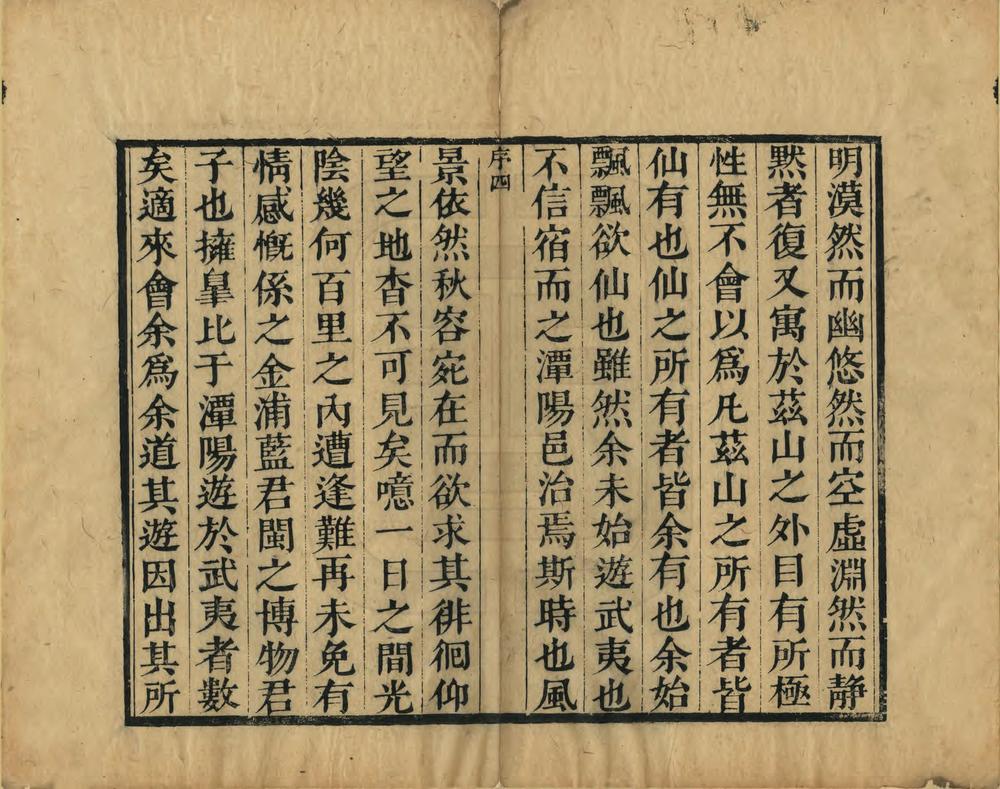 明漠然而幽悠然而空虛淵然而靜
黙者復又寓於茲山之外目有所極
性無不會以爲凡茲山之所有者皆
仙有也仙之所有者皆余有也余始
飄飄欲仙也雖然余未始遊武夷也
不信宿而之潭陽邑治焉斯時也風
序四
景依然秋容宛在而欲求其徘徊仰
望之地杳不可見矣噫一日之間光
陰幾何百里之內遭逢難再未免有
情感慨係之金浦藍君閩之博物君
子也擁臯比于潭陽遊於武夷者數
矣適來會余爲余道其遊因出其所